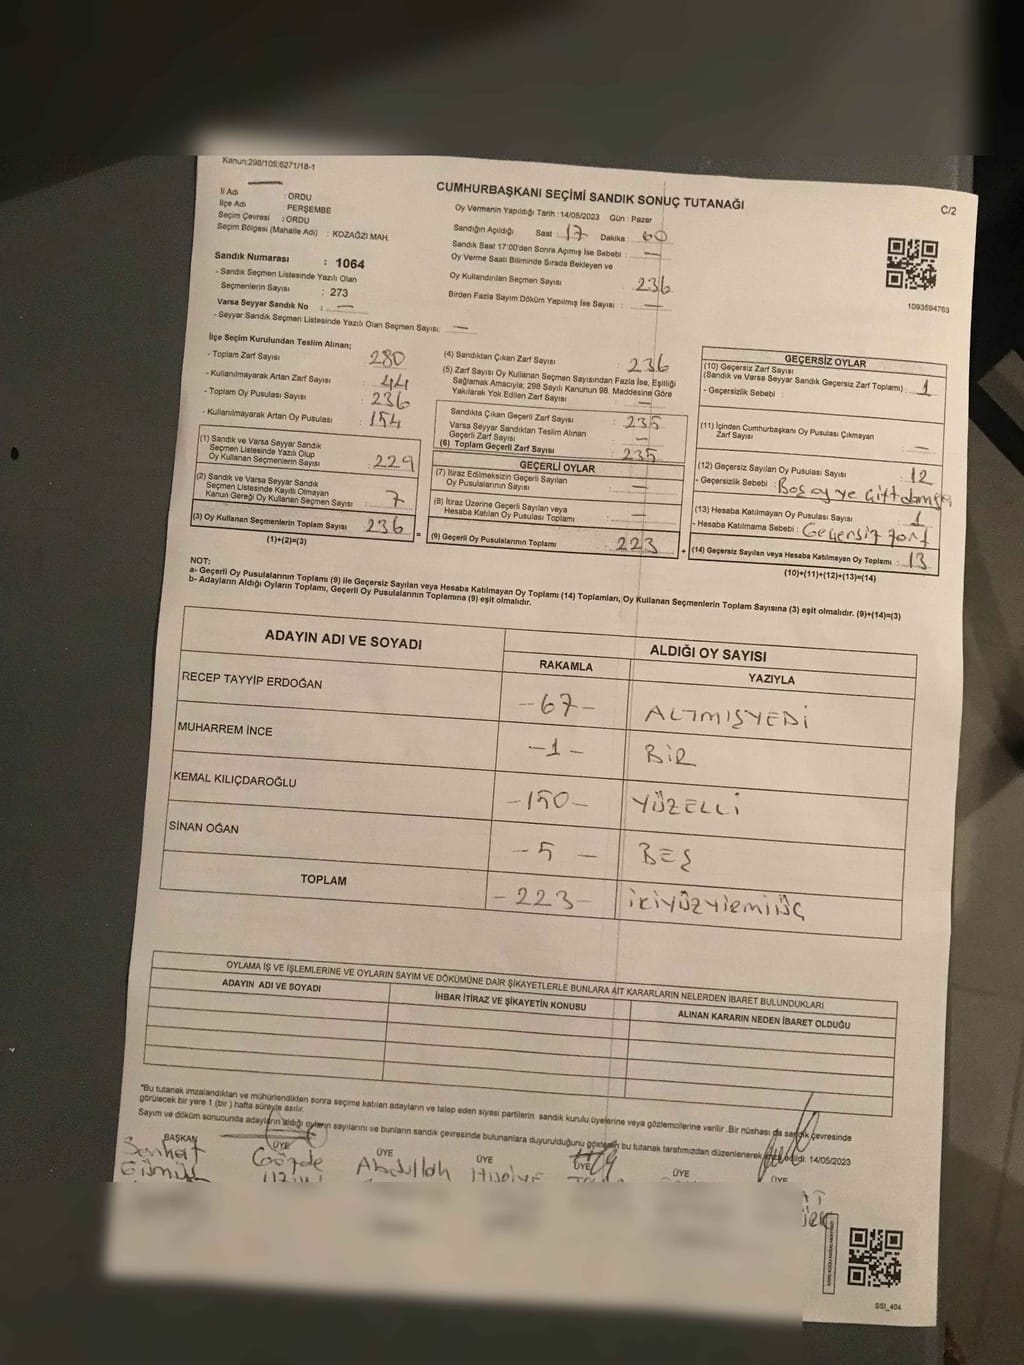 Kanun:298/105;6271/18-1
CUMHURBAŞKANI SEÇİMİ SANDIK SONUÇ TUTANAĞI
C/2
İl Adı : ORDU
İlçe Adı : PERŞEMBE
Seçim Çevresi : ORDU
Seçim Bölgesi (Mahalle Adı) : KOZAĞZI MAH.
Sandık Numarası : 1064
- Sandık Seçmen Listesinde Yazılı Olan
Seçmenlerin Sayısı : 273
Varsa Seyyar Sandık No : —
- Seyyar Sandık Seçmen Listesinde Yazılı Olan Seçmen Sayısı: —
Oy Vermenin Yapıldığı Tarih : 14/05/2023 Gün : Pazar
Sandığın Açıldığı Saat : 17 Dakika : 00
Sandık Saat 17:00'den Sonra Açımış İse Sebebi : —
Oy Verme Saati Bitiminde Sırada Bekleyen ve
Oy Kullandırılan Seçmen Sayısı : 236
Birden Fazla Sayım Döküm Yapılmış İse Sayısı : —
1093594763
İlçe Seçim Kurulundan Teslim Alınan;
- Toplam Zarf Sayısı : 280
- Kullanılmayarak Artan Zarf Sayısı : 44
- Toplam Oy Pusulası Sayısı : 236
- Kullanılmayarak Artan Oy Pusulası : 154
(1) Sandık ve Varsa Seyyar Sandık
Seçmen Listesinde Yazılı Olup
Oy Kullanan Seçmenlerin Sayısı : 229
(2) Sandık ve Varsa Seyyar Sandık
Seçmen Listesinde Kayıtlı Olmayan
Kanun Gereği Oy Kullanan Seçmen Sayısı : 7
(3) Oy Kullanan Seçmenlerin Toplam Sayısı 236
(1)+(2)=(3)
(4) Sandıktan Çıkan Zarf Sayısı : 236
(5) Zarf Sayısı Oy Kullanan Seçmen Sayısından Fazla İse, Eşitliği
Sağlamak Amacıyla, 298 Sayılı Kanunun 98. Maddesine Göre
Yakılarak Yok Edilen Zarf Sayısı : —
Sandıkta Çıkan Geçerli Zarf Sayısı : 235
Varsa Seyyar Sandıktan Teslim Alınan
Geçerli Zarf Sayısı : —
(6) Toplam Geçerli Zarf Sayısı : 235
GEÇERLİ OYLAR
(7) İtiraz Edilmeksizin Geçerli Sayılan
Oy Pusulalarının Sayısı : —
(8) İtiraz Üzerine Geçerli Sayılan veya
Hesaba Katılan Oy Pusulası Toplamı : —
= (9) Geçerli Oy Pusulalarının Toplamı : 223
GEÇERSİZ OYLAR
(10) Geçersiz Zarf Sayısı
(Sandık ve Varsa Seyyar Sandık Geçersiz Zarf Toplamı) : 1
- Geçersizlik Sebebi :
(11) İçinden Cumhurbaşkanı Oy Pusulası Çıkmayan
Zarf Sayısı : —
(12) Geçersiz Sayılan Oy Pusulası Sayısı : 12
- Geçersizlik Sebebi : Boş oy ve Çift damga
(13) Hesaba Katılmayan Oy Pusulası Sayısı : 1
- Hesaba Katılmama Sebebi : Geçersiz zarf
+ (14) Geçersiz Sayılan veya Hesaba Katılmayan Oy Toplamı : 13
(10)+(11)+(12)+(13)=(14)
NOT:
a- Geçerli Oy Pusulalarının Toplamı (9) ile Geçersiz Sayılan veya Hesaba Katılmayan Oy Toplamı (14) Toplamları, Oy Kullanan Seçmenlerin Toplam Sayısına (3) eşit olmalıdır. (9)+(14)=(3)
b- Adayların Aldığı Oyların Toplamı, Geçerli Oy Pusulalarının Toplamına (9) eşit olmalıdır.
ADAYIN ADI VE SOYADI
ALDIĞI OY SAYISI
RAKAMLA YAZIYLA
RECEP TAYYİP ERDOĞAN -67- ALTMIŞYEDİ
MUHARREM İNCE -1- BİR
KEMAL KILIÇDAROĞLU -150- YÜZELLİ
SİNAN OĞAN -5- BEŞ
TOPLAM -223- İKİYÜZYİEMİÜÇ
OYLAMA İŞ VE İŞLEMLERİNE VE OYLARIN SAYIM VE DÖKÜMÜNE DAİR ŞİKAYETLERLE BUNLARA AİT KARARLARIN NELERDEN İBARET BULUNDUKLARI
ADAYIN ADI VE SOYADI İHBAR İTİRAZ VE ŞİKAYETİN KONUSU ALINAN KARARIN NEDEN İBARET OLDUĞU
*Bu tutanak imzalandıktan ve mühürlendikten sonra seçime katılan adayların ve talep eden siyasi partilerin sandık kurulu üyelerine veya gözlemcilerine verilir .Bir nüshası da sandık çevresinde
görülecek bir yere 1 (bir ) hafta süreyle asılır.
Sayım ve döküm sonucunda adayların aldığı oyların sayılarını ve bunların sandık çevresinde bulunanlara duyurulduğunu gösteren bu tutanak tarafımızdan düzenlenerek imza edildi. 14/05/2023
BAŞKAN ÜYE ÜYE ÜYE ÜYE ÜYE ÜYE
Serhat Gözde Abdullah
Gümüş
SSI_404